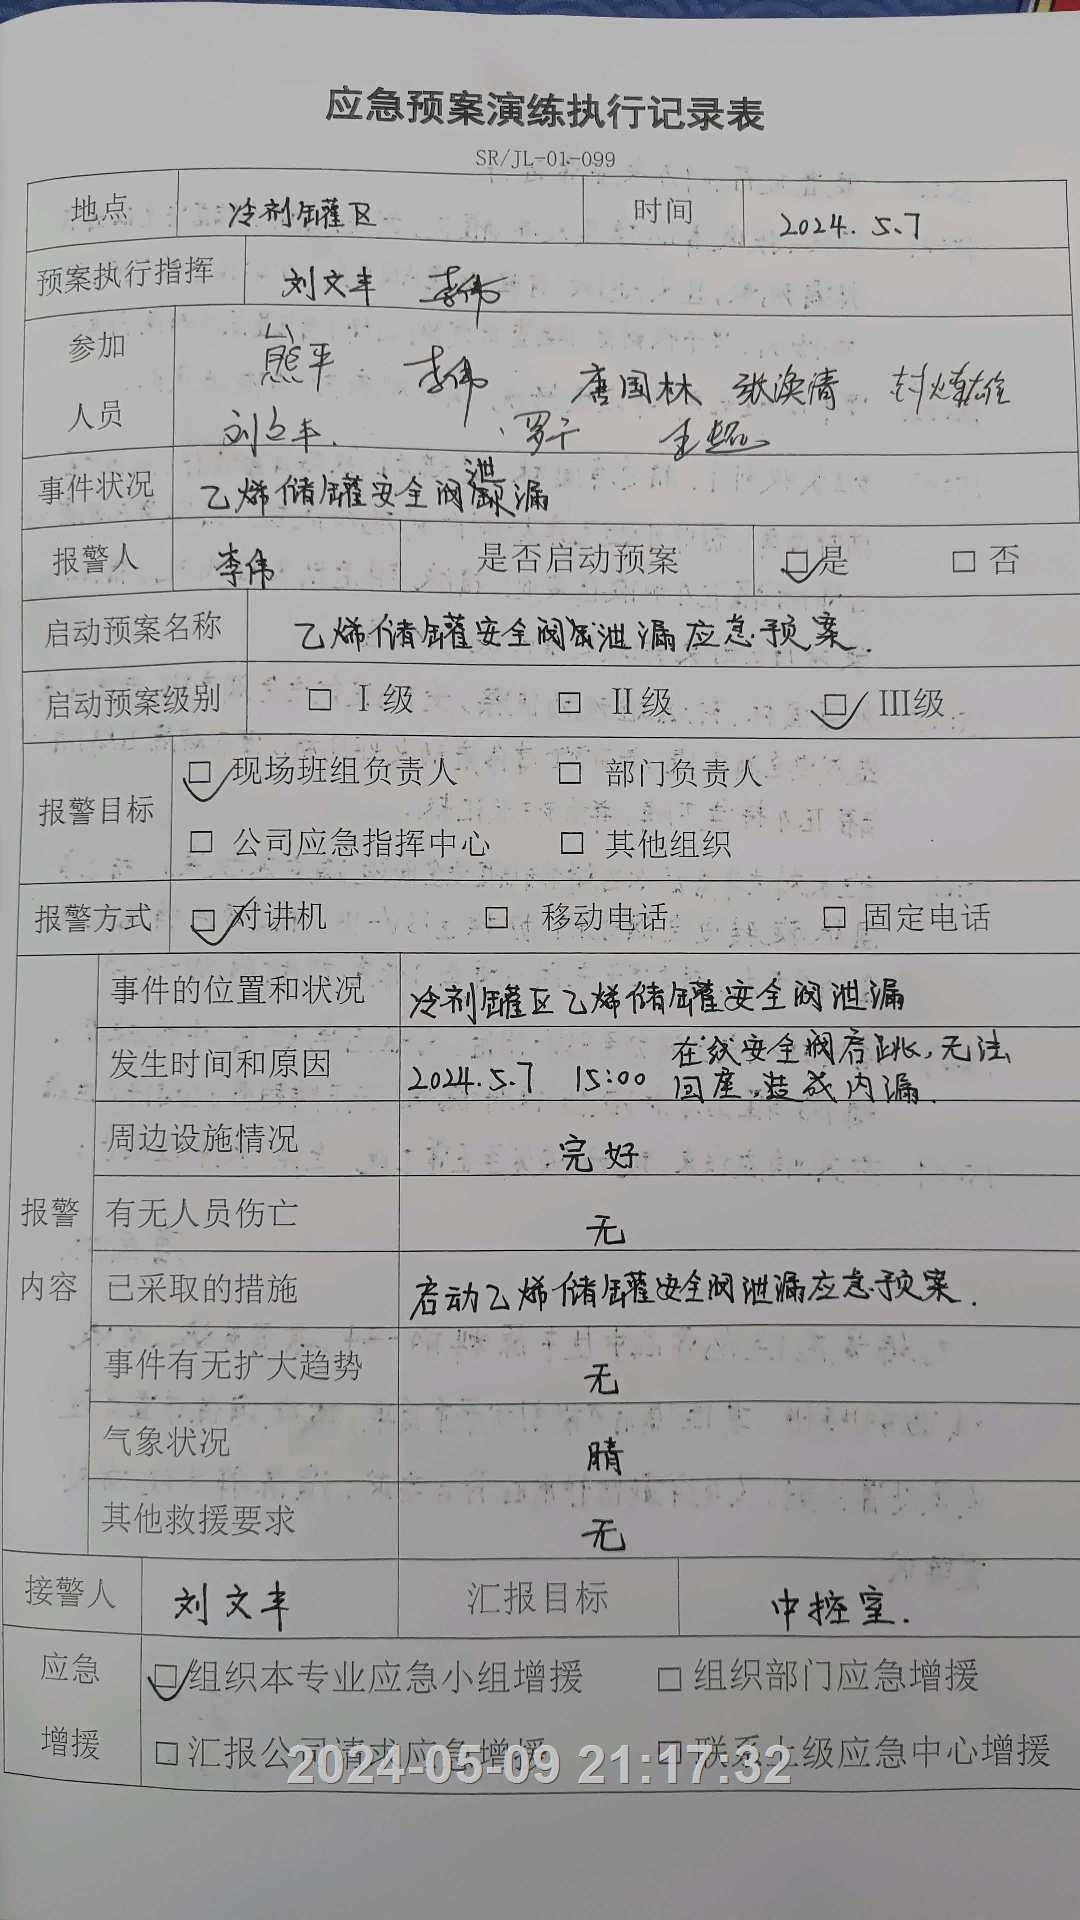 应急预案演练执行记录表
SR/JL-01-099
地点 冷剂罐区 时间 2024.5.7
预案执行指挥 刘文丰 李伟
参加 熊平 李伟 唐国林 张涣清
人员 刘文丰. 罗宁 王超
事件状况 乙烯储罐安全阀泄漏
报警人 李伟 是否启动预案 ☑是 □ 否
启动预案名称 乙烯储罐安全阀泄漏应急预案.
启动预案级别 □ Ⅰ级 □ Ⅱ级 ☑ Ⅲ级
报警目标 ☑ 现场班组负责人 □ 部门负责人
□ 公司应急指挥中心 □ 其他组织
报警方式 ☑ 对讲机 □ 移动电话 □ 固定电话
报警内容
事件的位置和状况 冷剂罐区乙烯储罐安全阀泄漏
发生时间和原因 2024.5.7 15:00 在线安全阀启跳,无法
回座,造成内漏.
周边设施情况 完好
有无人员伤亡 无
已采取的措施 启动乙烯储罐安全阀泄漏应急预案.
事件有无扩大趋势 无
气象状况 晴
其他救援要求 无
接警人 刘文丰 汇报目标 中控室.
应急 ☑组织本专业应急小组增援 □ 组织部门应急增援
增援 □ 汇报公司请求应急增援 □ 联系上级应急中心增援
2024-05-09 21:17:32